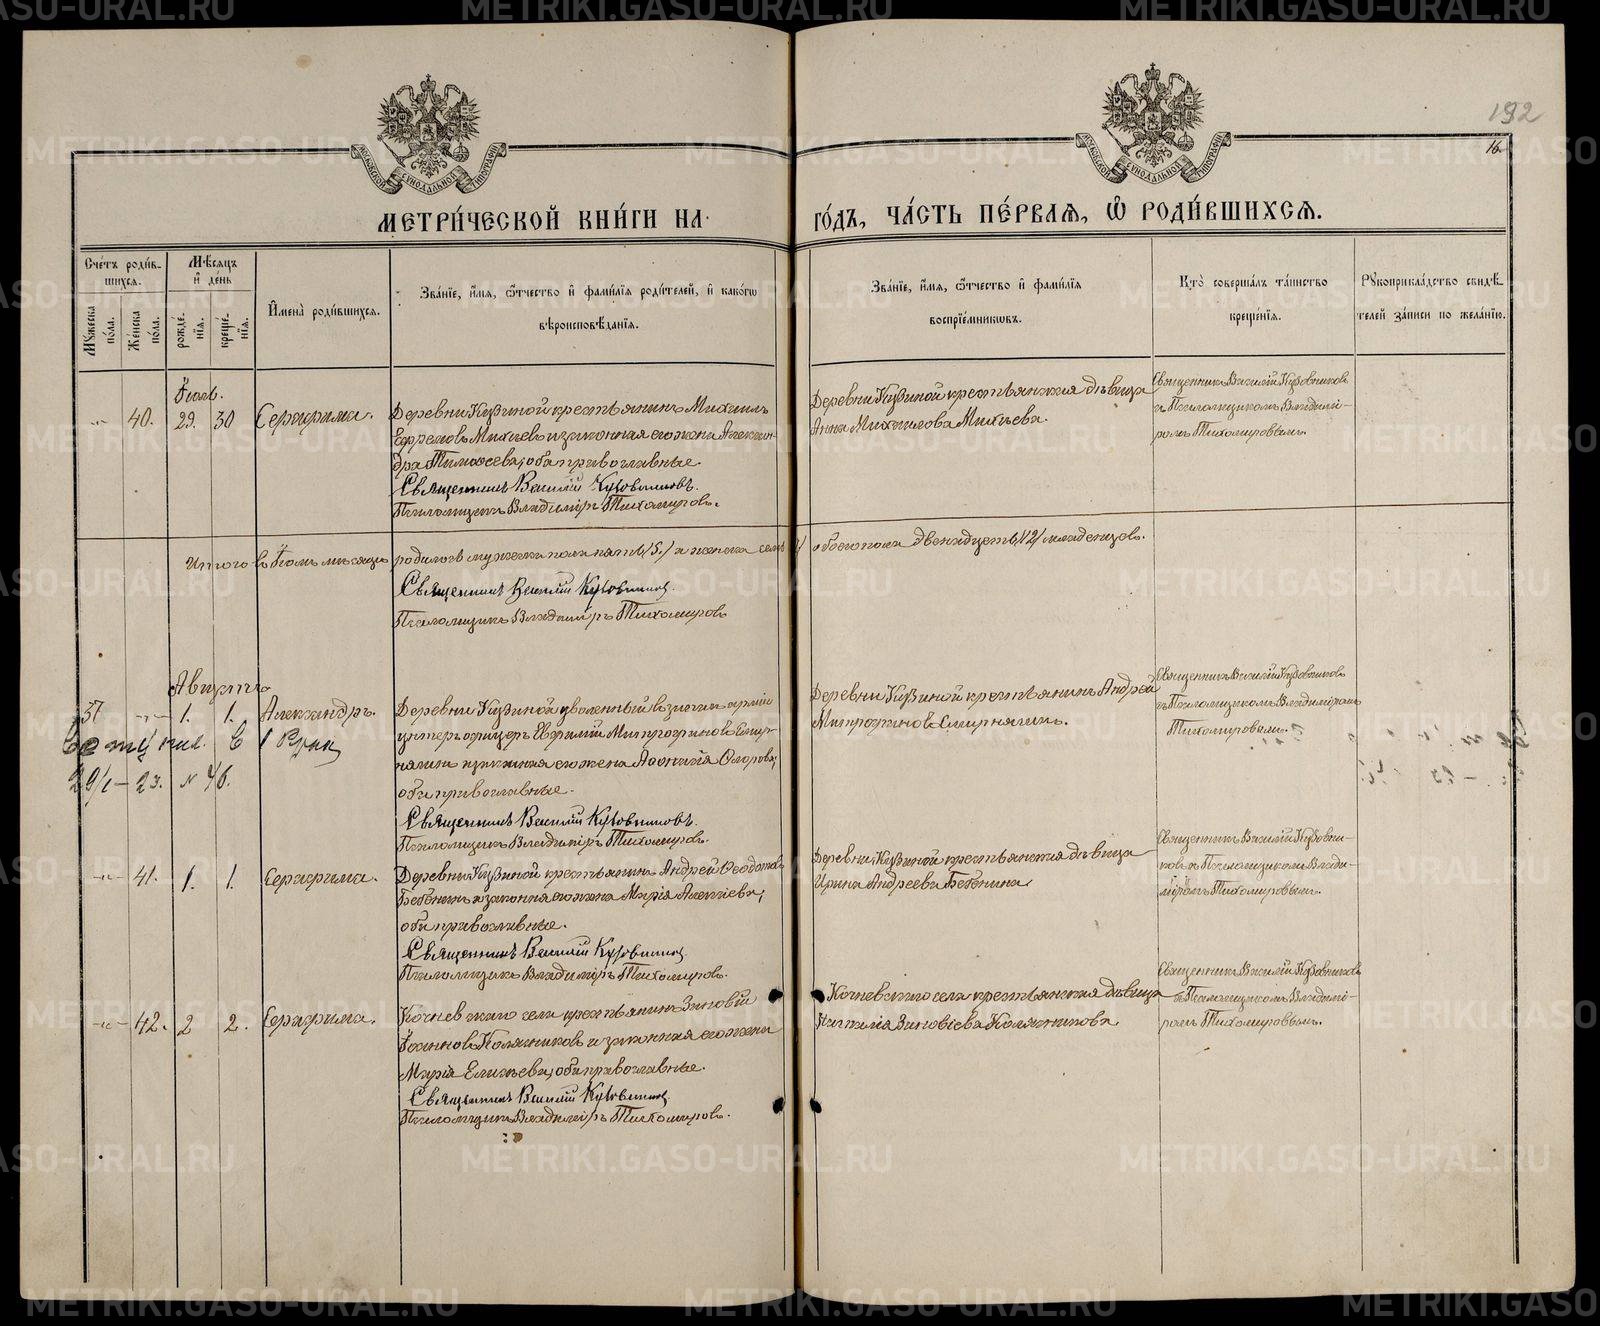 192
16
МОСКОВСКОЙ СУНОДАЛЬНОЙ ТИПОГРАФІИ
МОСКОВСКОЙ СУНОДАЛЬНОЙ ТИПОГРАФІИ
МЕТРИ́ЧЕСКОЙ КНИ́ГИ НА
ГО́ДЪ, ЧА́СТЬ ПЕ́РВАѦ, Ѡ҆ РОДИ́ВШИХСѦ.
Сче́тъ роди́в-
шихсѧ.
Мꙋжеска по́ла.
Же́нска по́ла.
Мѣ́сѧцъ и҆ де́нь
рожде́-нїѧ.
креще́-нїѧ.
И҆мена̀ роди́вшихсѧ.
Зва́нїе, и҆́мѧ, ѻ҆́тчество и҆ фами́лїѧ роди́телей, и҆ како́гѡ
вѣроисповѣ́данїѧ.
Зва́нїе, и҆́мѧ, ѻ҆́тчество и҆ фами́лїѧ
воспрїе́мниковъ.
Кто̀ соверша́лъ та́инство
креще́нїѧ.
Рꙋкоприкла́дство свидѣ́-
телей за́писи по жела́нїю.
Іюль.
40. 29. 30 Серафима.
Деревни Кузиной крестьянинъ Михаилъ
Ефремовъ Михѣевъ и законная его жена Алексан-
дра Тимоѳеева; оба православные.
Священникъ Василій Кузовниковъ.
Псаломщикъ Владиміръ Тихомировъ.
Деревни Кузиной крестьянская дѣвица
Анна Михаилова Михѣева.
Священникъ Василій Кузовниковъ
съ Псаломщикомъ Владимі-
ромъ Тихомировымъ.
Итого въ Іюлѣ мѣсяцѣ родилось мужеска пола пять /5./ а женска семь /7/ обоего пола двенадцать /12/ младенцовъ.
Священникъ Василій Кузовниковъ.
Псаломщикъ Владиміръ Тихомировъ
Августъ
37 1. 1. Александръ.
Вступил. в I брак
29/I – 23. № 46.
Деревни Кузиной уволенный въ запасъ арміи
унтеръ офицеръ Евфимій Митрофановъ Смир-
нягинъ и законная его жена Аѳанасія Ѳлорова;
оба православные.
Священникъ Василій Кузовниковъ.
Псаломщикъ Владиміръ Тихомировъ.
Деревни Кузиной крестьянинъ Андрей
Митрофановъ Смирнягинъ.
Священникъ Василій Кузовниковъ
съ Псаломщикомъ Владиміромъ
Тихомировымъ.
41. 1. 1. Серафима.
Деревни Кузиной крестьянинъ Андрей Ѳеодотовъ
Бабенинъ и законная его жена Марія Алексіева;
оба православные.
Священникъ Василій Кузовниковъ.
Псаломщикъ Владиміръ Тихомировъ.
Деревни Кузиной крестьянская дѣвица
Ирина Андреева Бабенина.
Священникъ Василій Кузовни-
ковъ съ Псаломщикомъ Влади-
міромъ Тихомировымъ.
42. 2 2. Серафима.
Кочневскаго села крестьянинъ Зиновій
Іоанновъ Колясниковъ и законная его жена
Марія Елисѣева; оба православные.
Священникъ Василій Кузовниковъ.
Псаломщикъ Владиміръ Тихомировъ.
Кочневскаго села крестьянская дѣвица
Наталія Зиновіева Колясникова
Священникъ Василій Кузовниковъ
съ Псаломщикомъ Владимі-
ромъ Тихомировымъ.
METRIKI.GASO-URAL.RU